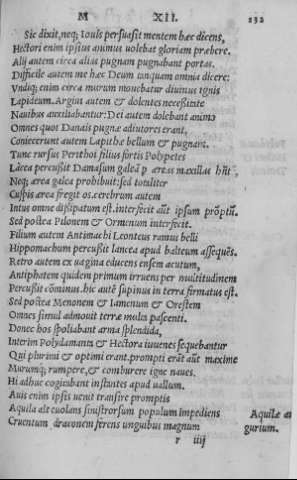 M XII. 232
Sic dixit, neq; Iouis persuasit mentem hæc dicens,
Hectori enim ipsius animus uolebat gloriam præbere.
Alij autem circa alias pugnam pugnabant portas.
Difficile autem me hæc Deum tanquam omnia dicere:
Vndiq; enim circa murum mouebatur diuinus ignis
Lapideum. Argiui autem & dolentes necessitate
Nauibus auxiliabantur: Dei autem dolebant animo
Omnes quot Danais pugnæ adiutores erant,
Coniecerunt autem Lapithæ bellum & pugnam.
Tunc rursus Perithoi filius fortis Polypetes
Lācea percussit Damasum galeā p æreas maxillas hñt,
Neq; ærea galea prohibuit: sed totaliter
Cuspis ærea fregit os. cerebrum autem
Intus omne dissipatum est. interfecit aūt ipsum prōptū.
Sed postea Pilonem & Ormenum interfecit.
Filium autem Antimachi Leonteus ramus belli
Hippomachum percussit lancea apud balteum assequēs.
Retro autem ex uagina educens ensem acutum,
Antiphatem quidem primum irruens per multitudinem
Percussit cōminus. hic autē supinus in terra firmatus est.
Sed postea Menonem & Iamenum & Orestem
Omnes simul admouit terræ multa pascenti.
Donec hos spoliabant arma splendida,
Interim Polydamanta & Hectora iuuenes sequebantur
Qui plurimi & optimi erant. prompti erāt aūt maxime
Murumq; rumpere, & comburere igne naues.
Hi adhuc cogitabant instantes apud uallum.
Auis enim ipsis uenit transire promptis
Aquila alte uolans sinistrorsum populum impediens
Aquilæ au
Cruentum draconem ferens unguibus magnum
gurium.
r iiij